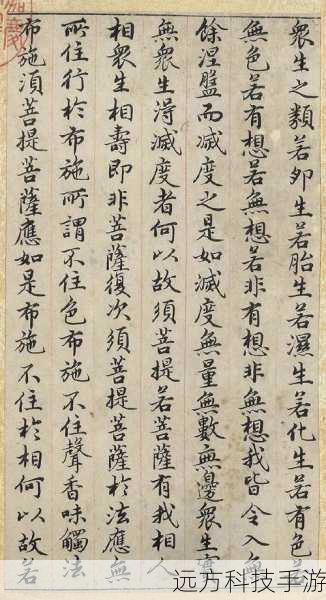 衆生之類若卵生若胎生若濕生若化生若有色若
無色若有想若無想若非有想非無想我皆令入無
餘涅盤而滅度之是如滅度無量無數無邊衆生實
無衆生淂滅度者何以故須菩提若菩薩有我相人
相衆生相壽即非菩薩復次須菩提菩薩於法應無
所住行於布施所謂不住色布施不住聲香味觸法
布施湏菩提菩薩應如是布施不住於相何以故若
远方科技手游